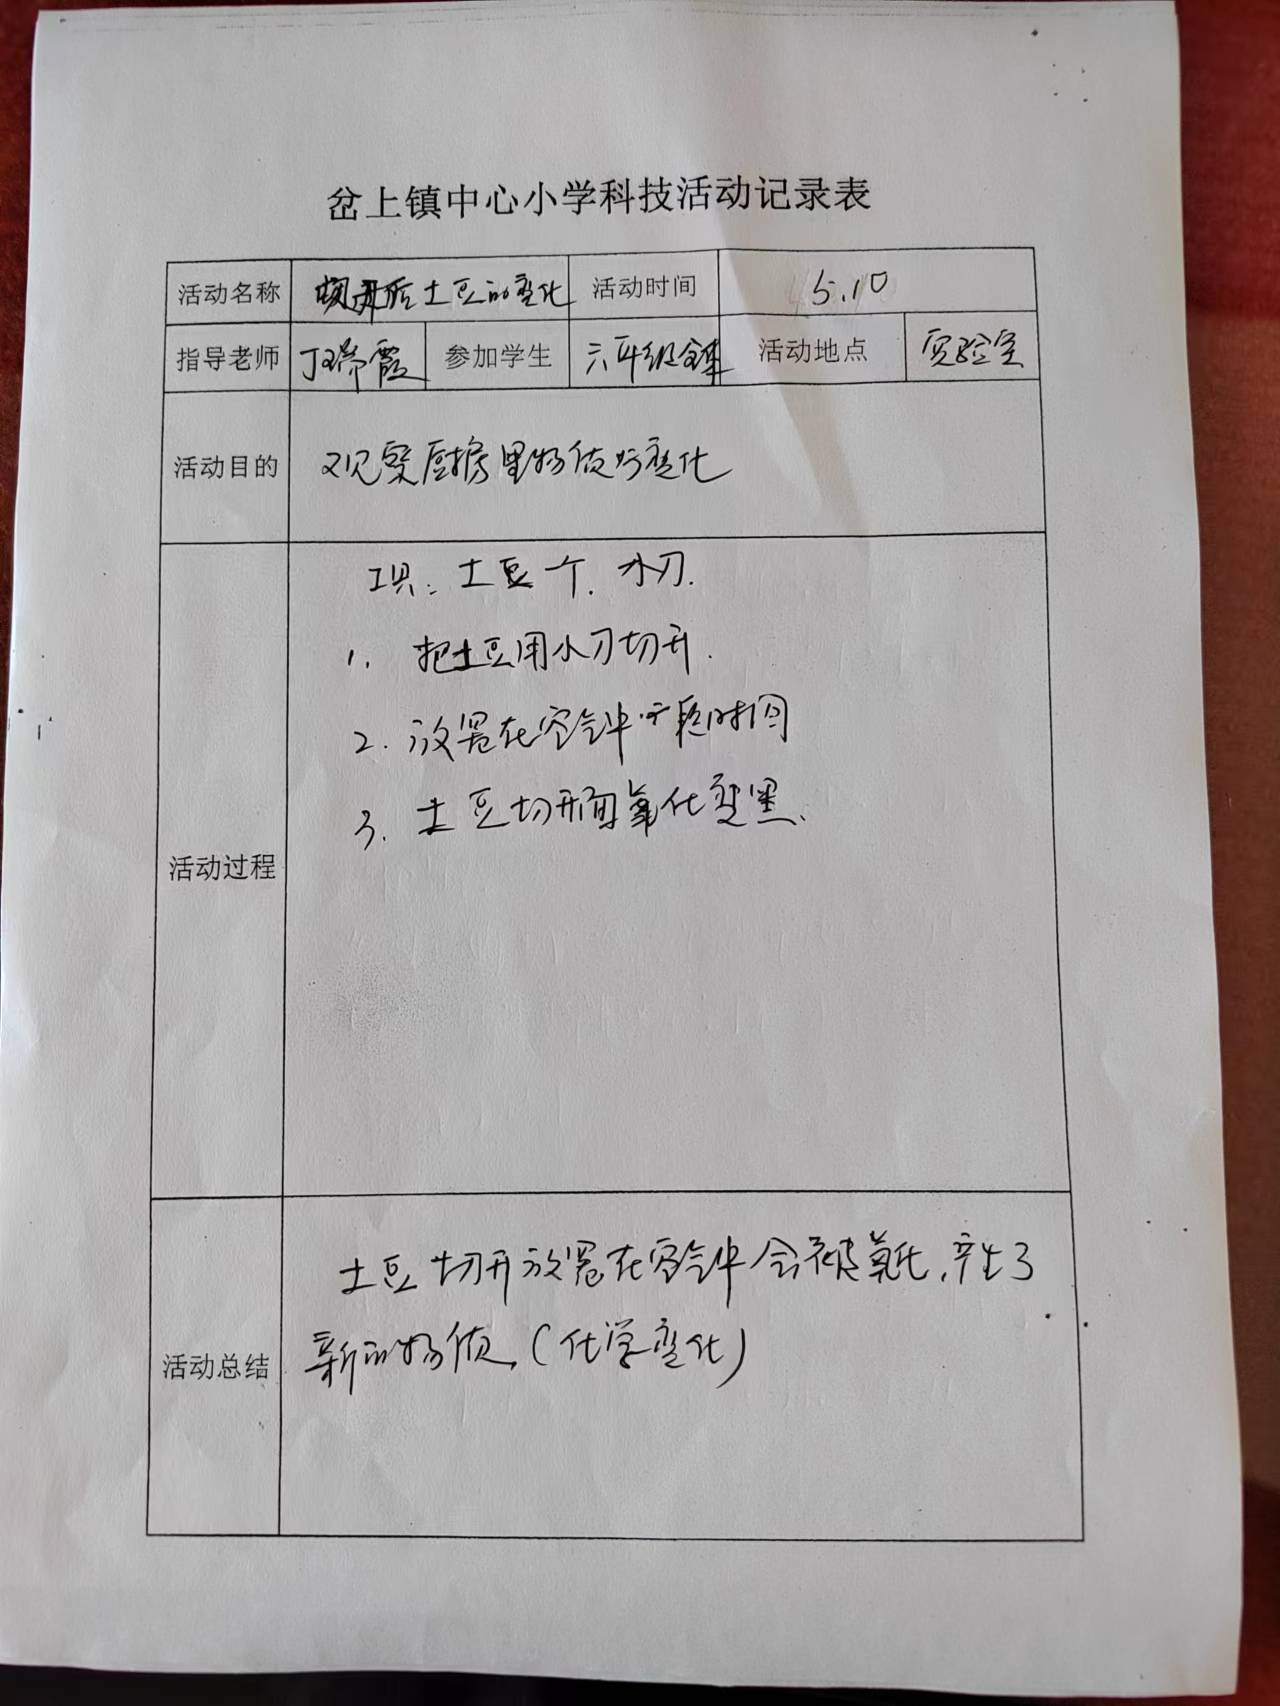 岔上镇中心小学科技活动记录表
活动名称 切开后土豆的变化 活动时间 5.10
指导老师 丁瑞霞 参加学生 六年级全体 活动地点 实验室
活动目的 观察厨房里物质的变化
工具：土豆一个．小刀．
1．把土豆用小刀切开．
2．放置在空气中一段时间
3．土豆切开面氧化变黑．
活动过程
土豆切开放置在空气中会被氧化，产生了
新的物质．(化学变化)
活动总结